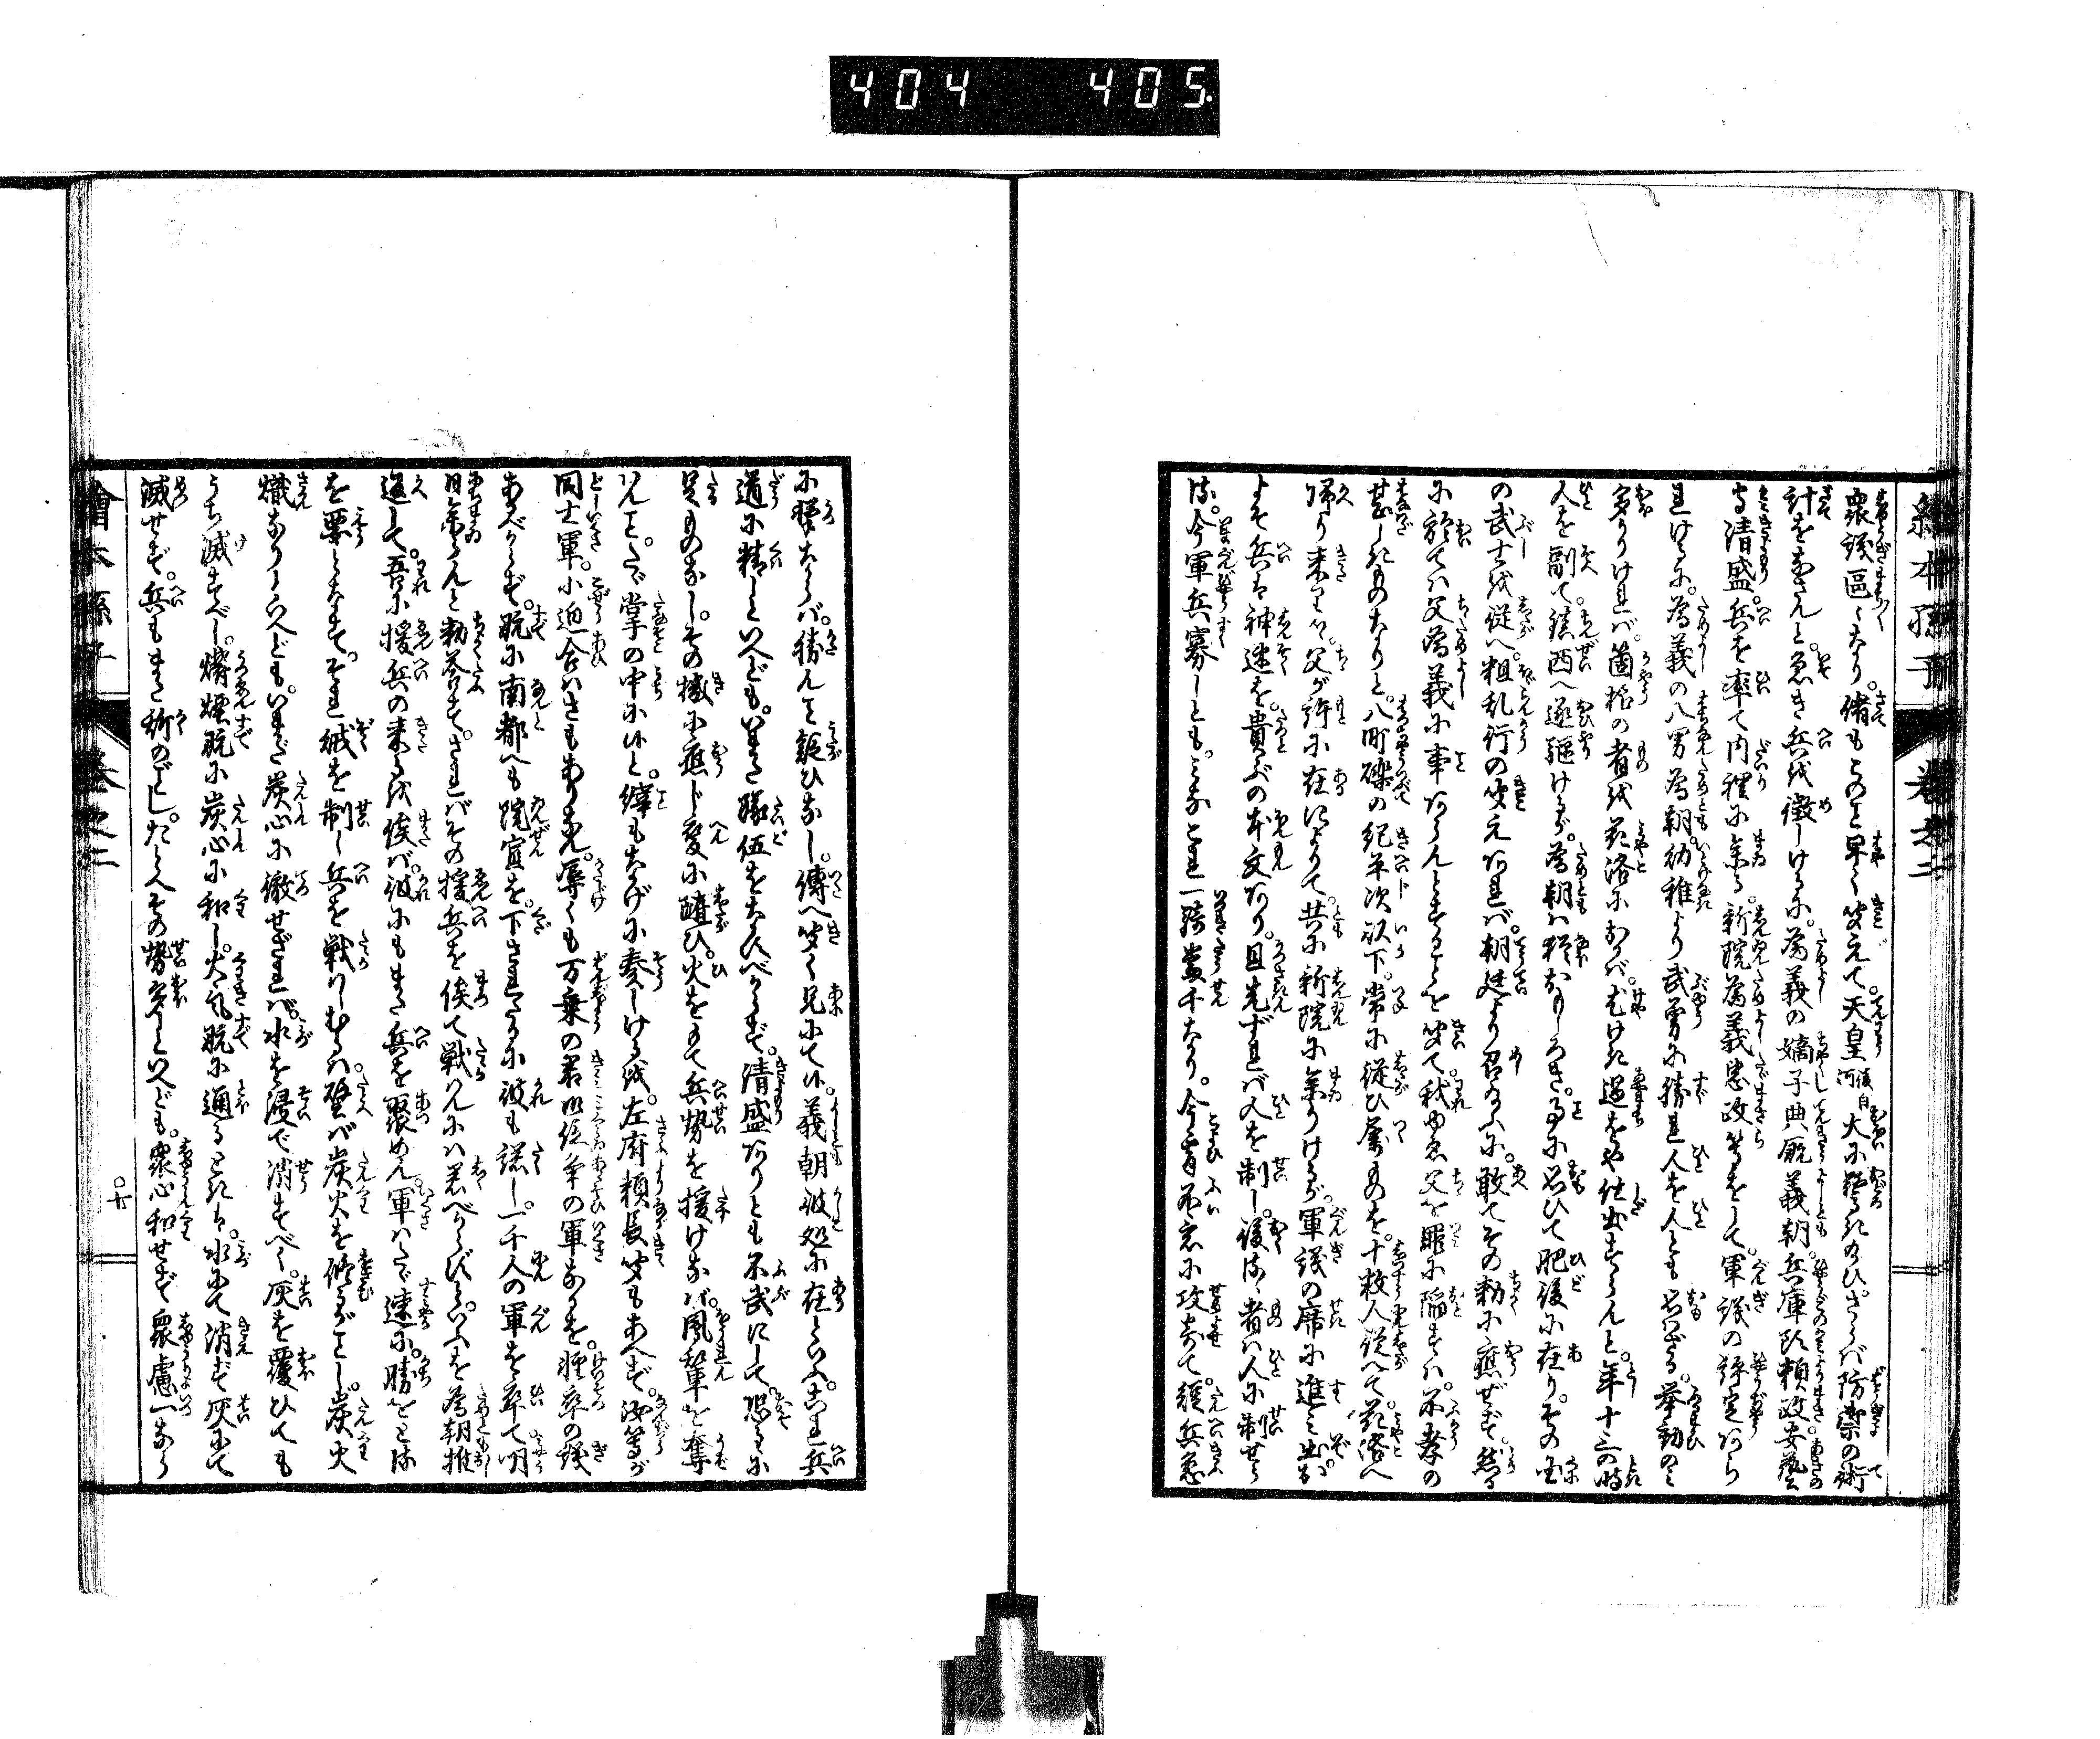 404 405
繪本孫子 卷之二
衆議區〻なり。偖もこのこと早く聞えて。天皇後白河大に驚きのひ。さらバ防禦の術
計をなさんと。急き兵を徴しけるに。為義の嫡子典厩義朝。兵庫頭頼政安藝
守清盛。兵を率て内裡に参る。新院為義忠政等をして。軍議の評定あら
れけるに。為義の八男為朝。幼稚より武勇に勝れ人を人とも思ハざる。挙動のミ
多かりけれバ。箇程の者を花洛におかバ。过を仕出すらんと。年十三の時
人を副て。鎮西へ逐駆けるが。為朝ハ猶おもしろき。ことに思ひて肥後に在り。その国
の武士を従へ。粗乱行の聞えあれバ。朝廷より召るゝに。敢てその勅に應ぜず。然る
に於てハ父為義に事あらんとすることを聞て。我ゆゑ父を罪に陥すハ。不孝の
甚しきものなりと。八町礫の紀平次以下。常に従ひ属ものを。十数人従へて。花洛へ
帰り来りて。父が許に在によりて。共に新院に参りけるが。軍議の席に進ミ出。お
よそ兵は神速を。貴ぶの本文あり。且先ずれバ人を制し。後るゝ者ハ人に制せら
る。今軍兵寡しとも。ミなこれ一騎當千なり。今宵不意に攻寄て。援兵急
に撃ならバ。勝んこと疑ひなし。傳へ聞く兄にて候。義朝彼処に在といふ。これ兵
道に精しといへども。いまだ隊伍をなすべからず。清盛ありとも不武にして。恐るゝに
足ものなし。その機に應じ変に随ひ。火をもて兵勢を援けなバ。鳳輦を奪
ハんこと。たゞ掌の中に候と。繹もなげに奏しけるを。左府頼長聞もあへず。汝等が
同士軍。小迫合ハさもありなん。辱くも万乗の君御位争の軍なるを。軽卒の議
あべからず。既に南都へも院宣を。下されたるに彼も諾し。一千人の軍を率て明
日参らんと勅答す。されバその援兵を俟て戦ハんにハ若べからずといふを為朝推
返して。吾に援兵の来るを俟バ。彼にもまた兵を聚めん。軍ハたゞ速に。勝ことは
を要しとす。それ絨を制し兵を戦ハしむるハ。譬バ炭火を修るがごとし。炭火
熾なりといへども。いまだ炭心に徹せざれバ。水を浸で消すべく。灰を覆ひても
うち滅すべし。燐煙既に炭心に和し。火気既に通るときは。水にて消ず灰にて
滅せず。兵もまた斯のごとし。たとへその勢多しといへども。衆心和せず衆慮一なら
繪本孫子 卷之二 ○十